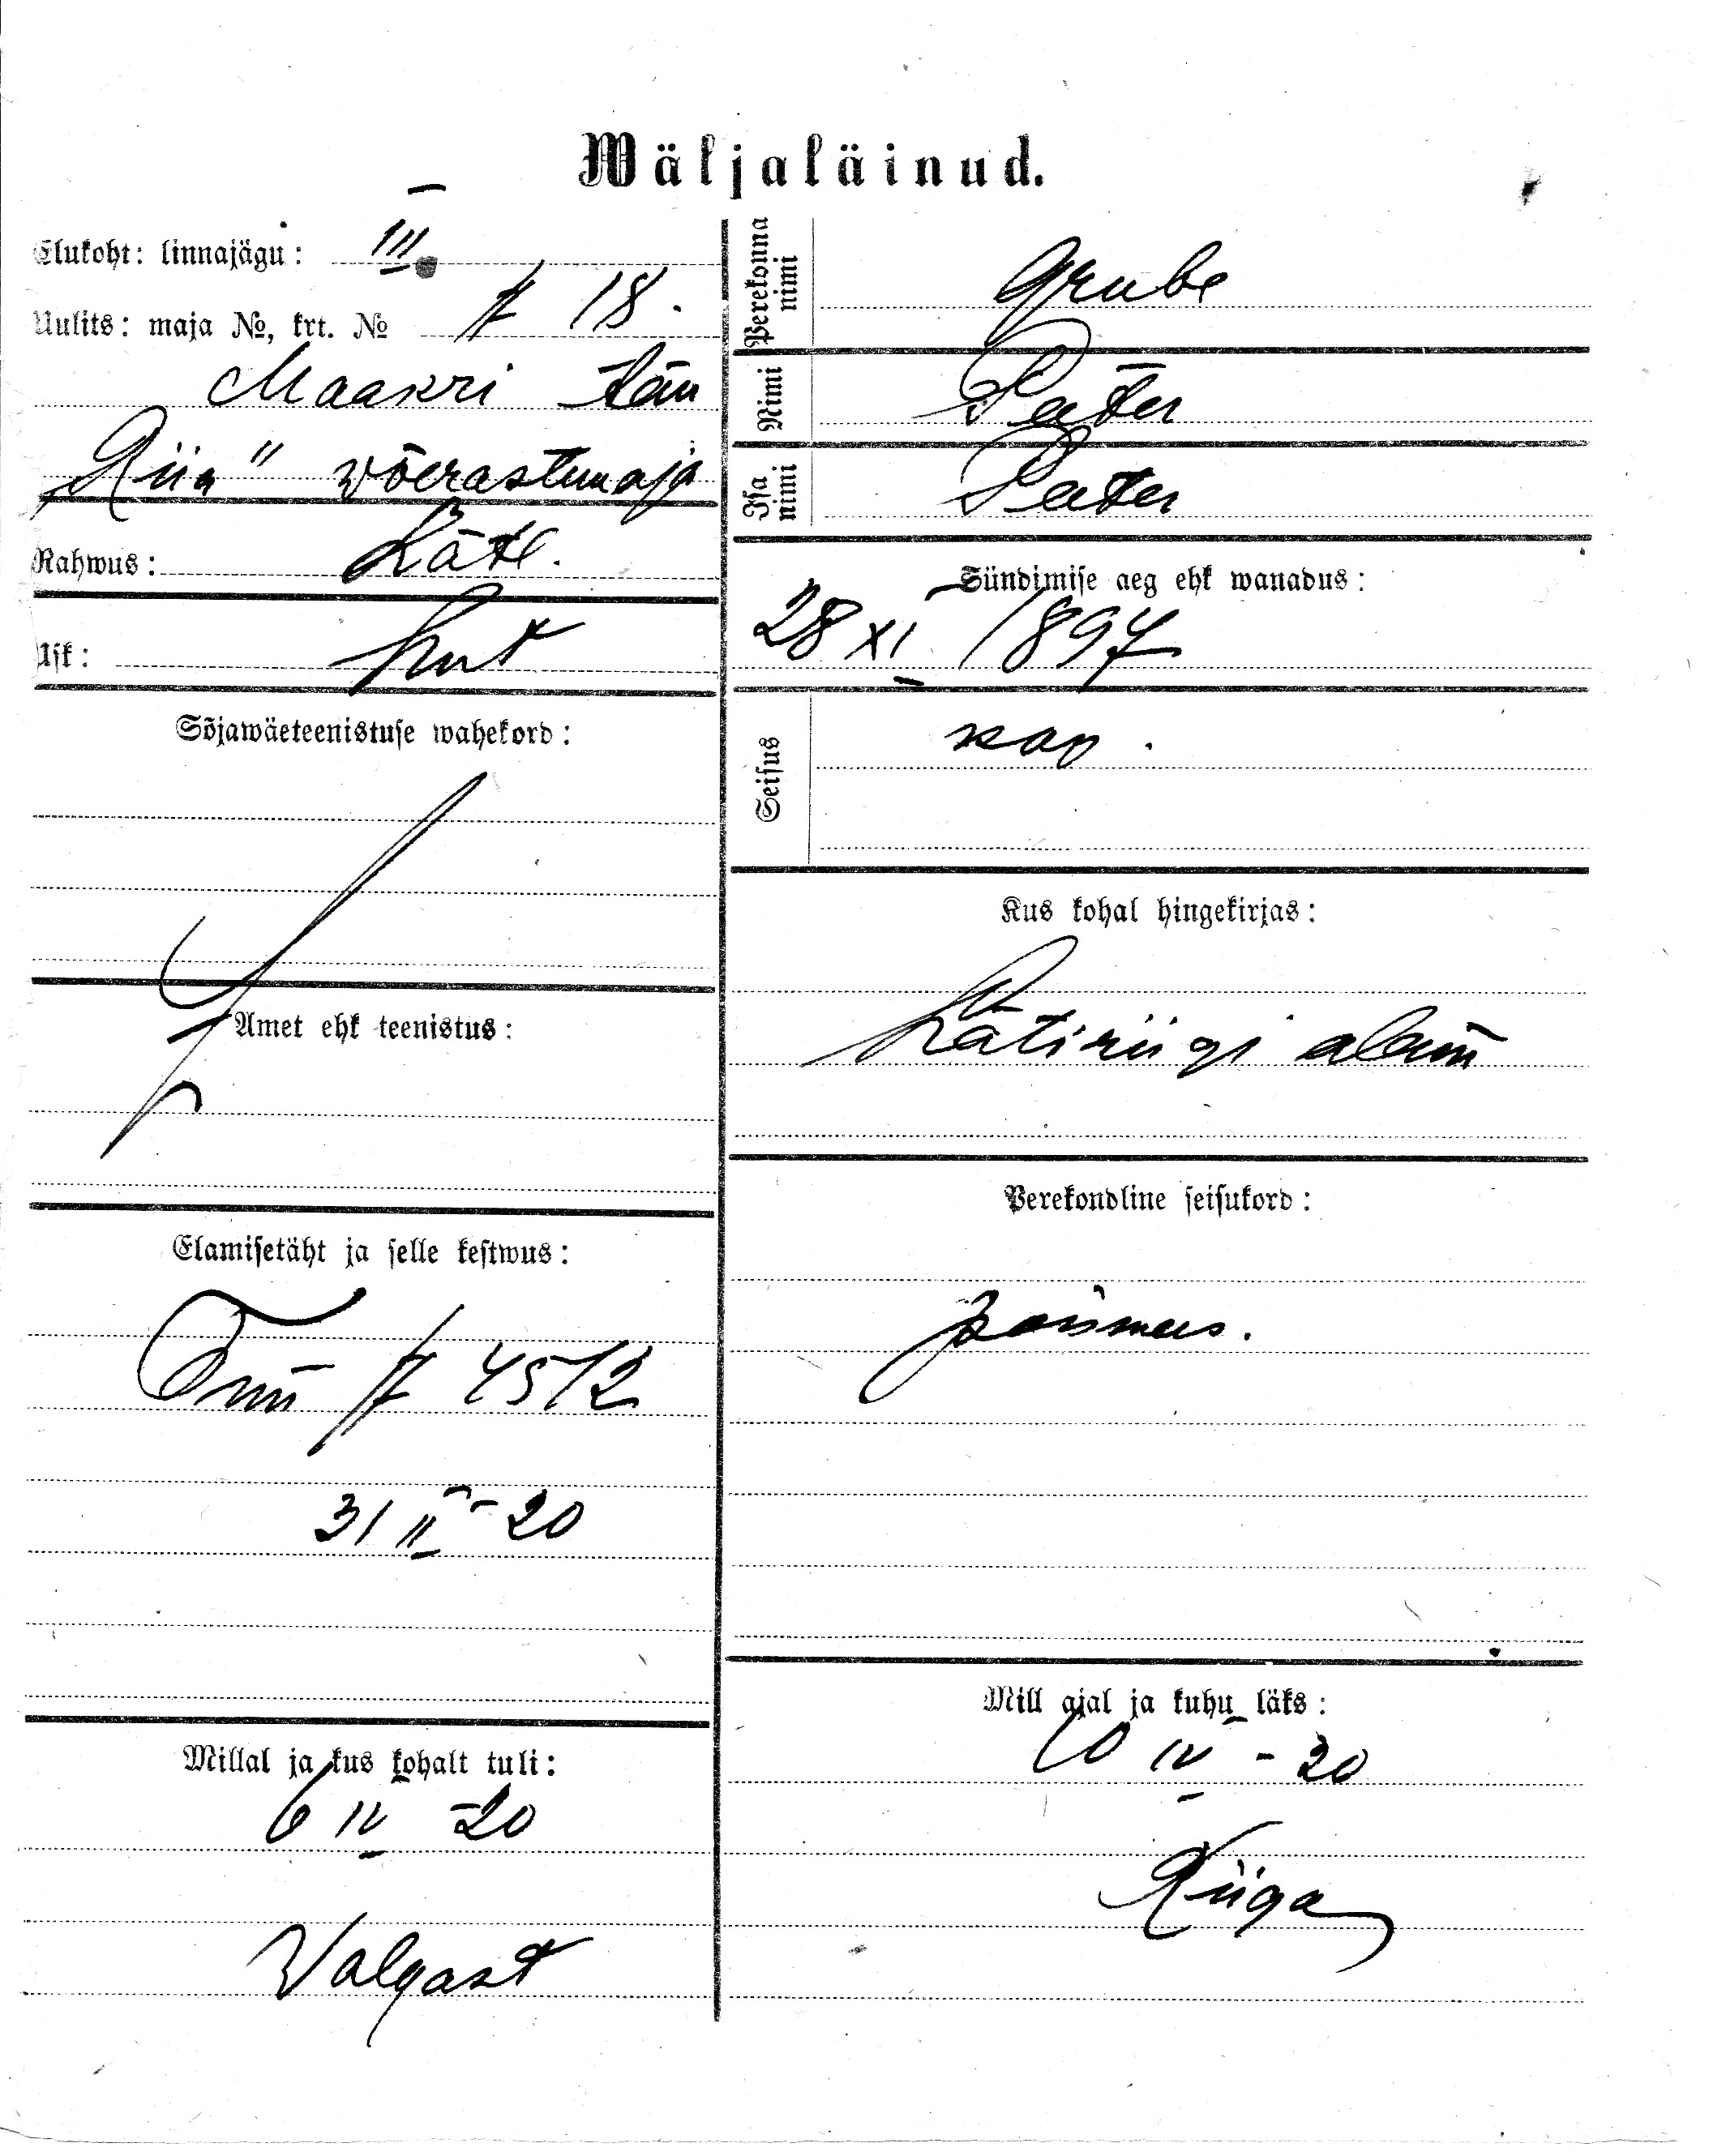 Wäljaläinud.
Elukoht: linnajägu: III
Uulits: maja №, krt. № 18.
Maakri tän
„Riia" võerastemaja
Rahwus: Lätl.
Usk: Lut
Sõjawäeteenistuse wahekord:
Amet ehk teenistus:
Elamisetäht ja selle kestwus:
4512
31 II - 20
Millal ja kus kohalt tuli:
6 IV - 20
Walgast
Perekonna nimi Grube
Nimi Peter
Isa nimi Peter
Sündimise aeg ehk wanadus:
28 XI 1897
Seisus
Kus kohal hingekirjas:
Lätiriigi alam
Perekondline seisukord:
poismees.
Mill ajal ja kuhu läks:
10 IV - 20
Riiga